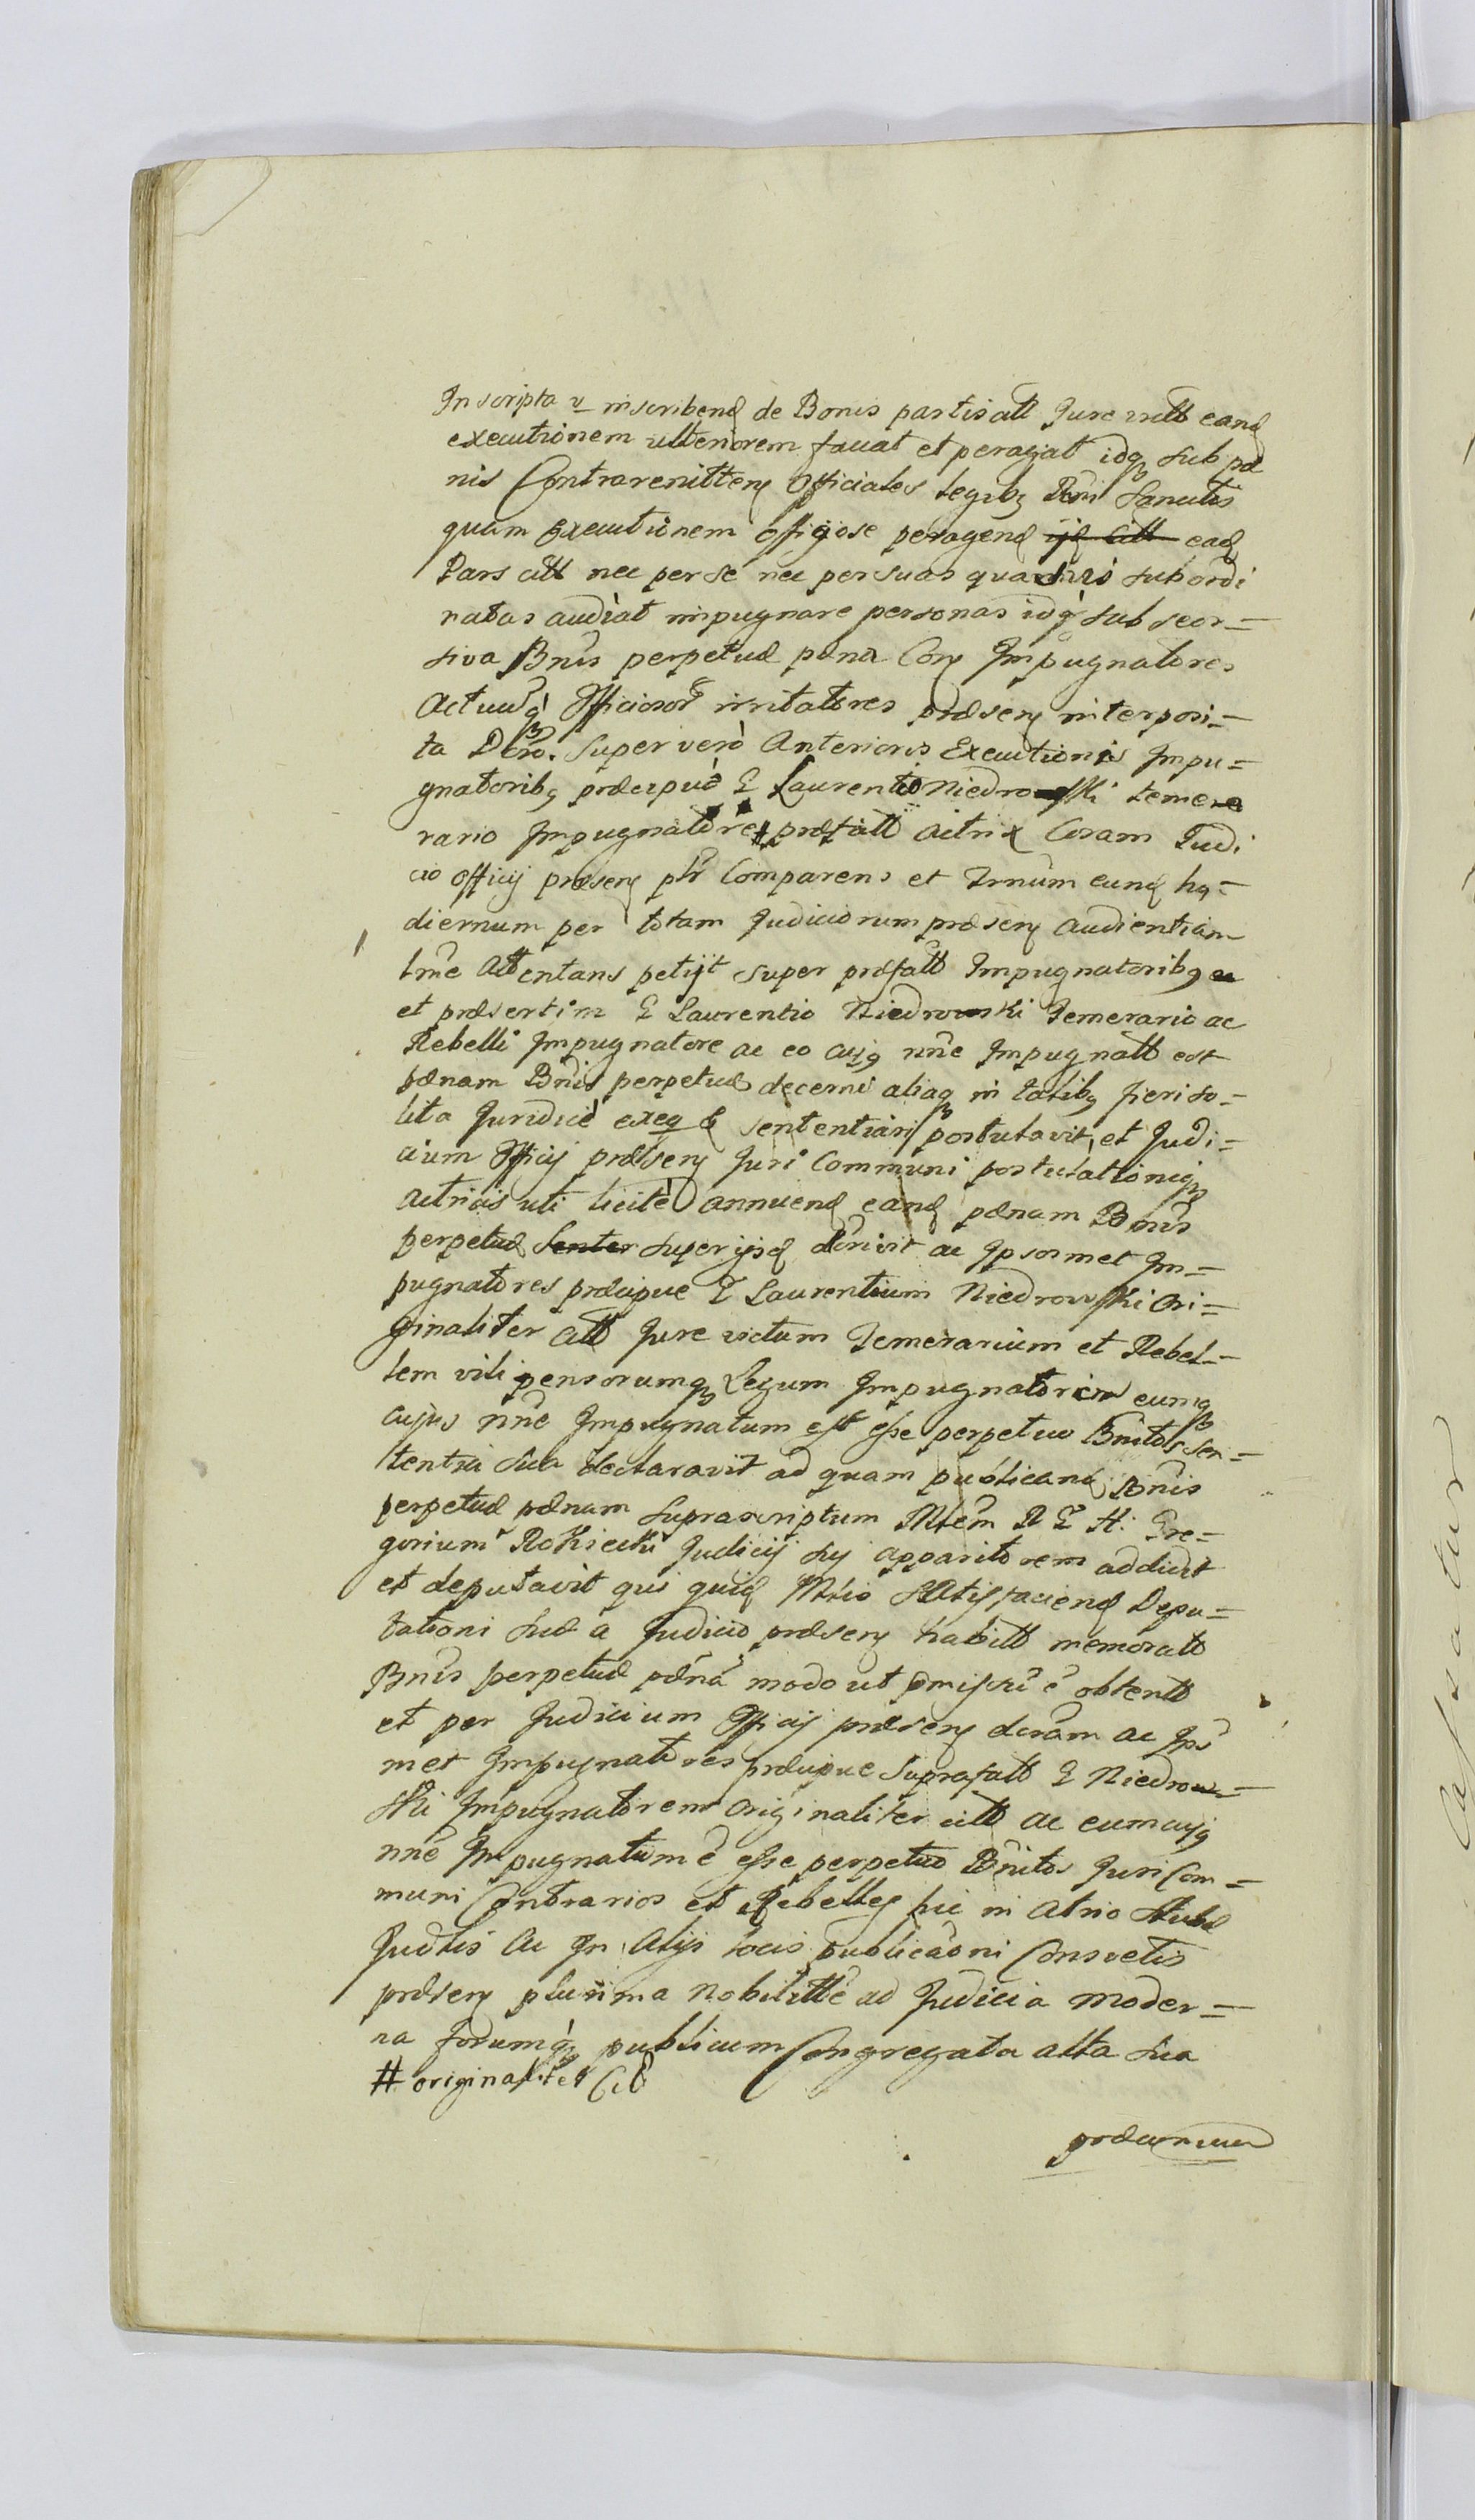 Inscripta v inscribend de Bonis partis citt Jure victt eand
executionem ulteriorem faciat et peragat idq sub pæ
nis Contravenitten Officiales legibq Rni Sancitis
quam Executionem officiose peragend ijd citt ead
Pars citt nec per se nec per suas quasvis subordi
natas audiat impugnare personas idq sub seor=
siva Bnis perpetuæ pæna Con Impugnatores
Actuuq Officiosor irritatores præsen interposi=
ta Dcro. Super verò Anterioris Executionis Impu=
gnatoribq præcipuè G Laurentio Niedrowski teme
rario Impugnatore # præfatt Actrix Coram Judi
cio Officij præsen ptr Comparens et Trnum eund ho=
diernum per totam Judiciorum præsen audientiam
lme Attentans petijt super præfatt Impugnatoribq
et præsertim G Laurentio Niedrowski Temerario ac
Rebelli Impugnatore ac eo cujq nne Impugnatt est
pænam Bnis perpetuæ decerni aliaq in talibq fieri so=
lita Juridicè exeq & sententiari postulavit, et Judi=
cium Officij præsen Juri Communi postulationiq
Actricis uti licitè annuend eand pænam Bnis
perpetuæ Senter super ijsd dcrivit ac Ipsosmet Im=
pugnatores præcipue G Laurentium Niedrowski Ori=
ginaliter citt Jure victum Temerarium et Rebel=
lem vilipensorumq Legum Impugnatorem eumq
cujus nne Impugnatum est esse perpetuo Bnitos sen=
tentia sua declaravit ad quam publicand Bnis
perpetuæ pænam suprascriptum Mtem R G H: Gre=
gorium Rokicki Judicij sui apparitorem addidit
et deputavit qui quid Mtrio satisfaciend Depu=
tationi suæ à Judicio præsen habitt memoratt
Bnis perpetuæ pæna modo ut pmissu e obtentt
et per Judicium Officij præsen dcram ac Ips
met Impugnatores præcipue suprafatt G Niedrow=
ski Impugnatorem originaliter citt ac eum cujq
nne Impugnatum e esse perpetuo Bnitos Juri Com=
muni Contrarios et Rebelles hic in Atrio Stubæ
Judlis Ac In Alijs locis publicaoni Consvetis
præsen plurima Nobilitte ad Judicia moder=
na forumq publicum Congregata alta sua
# originaliter Citt